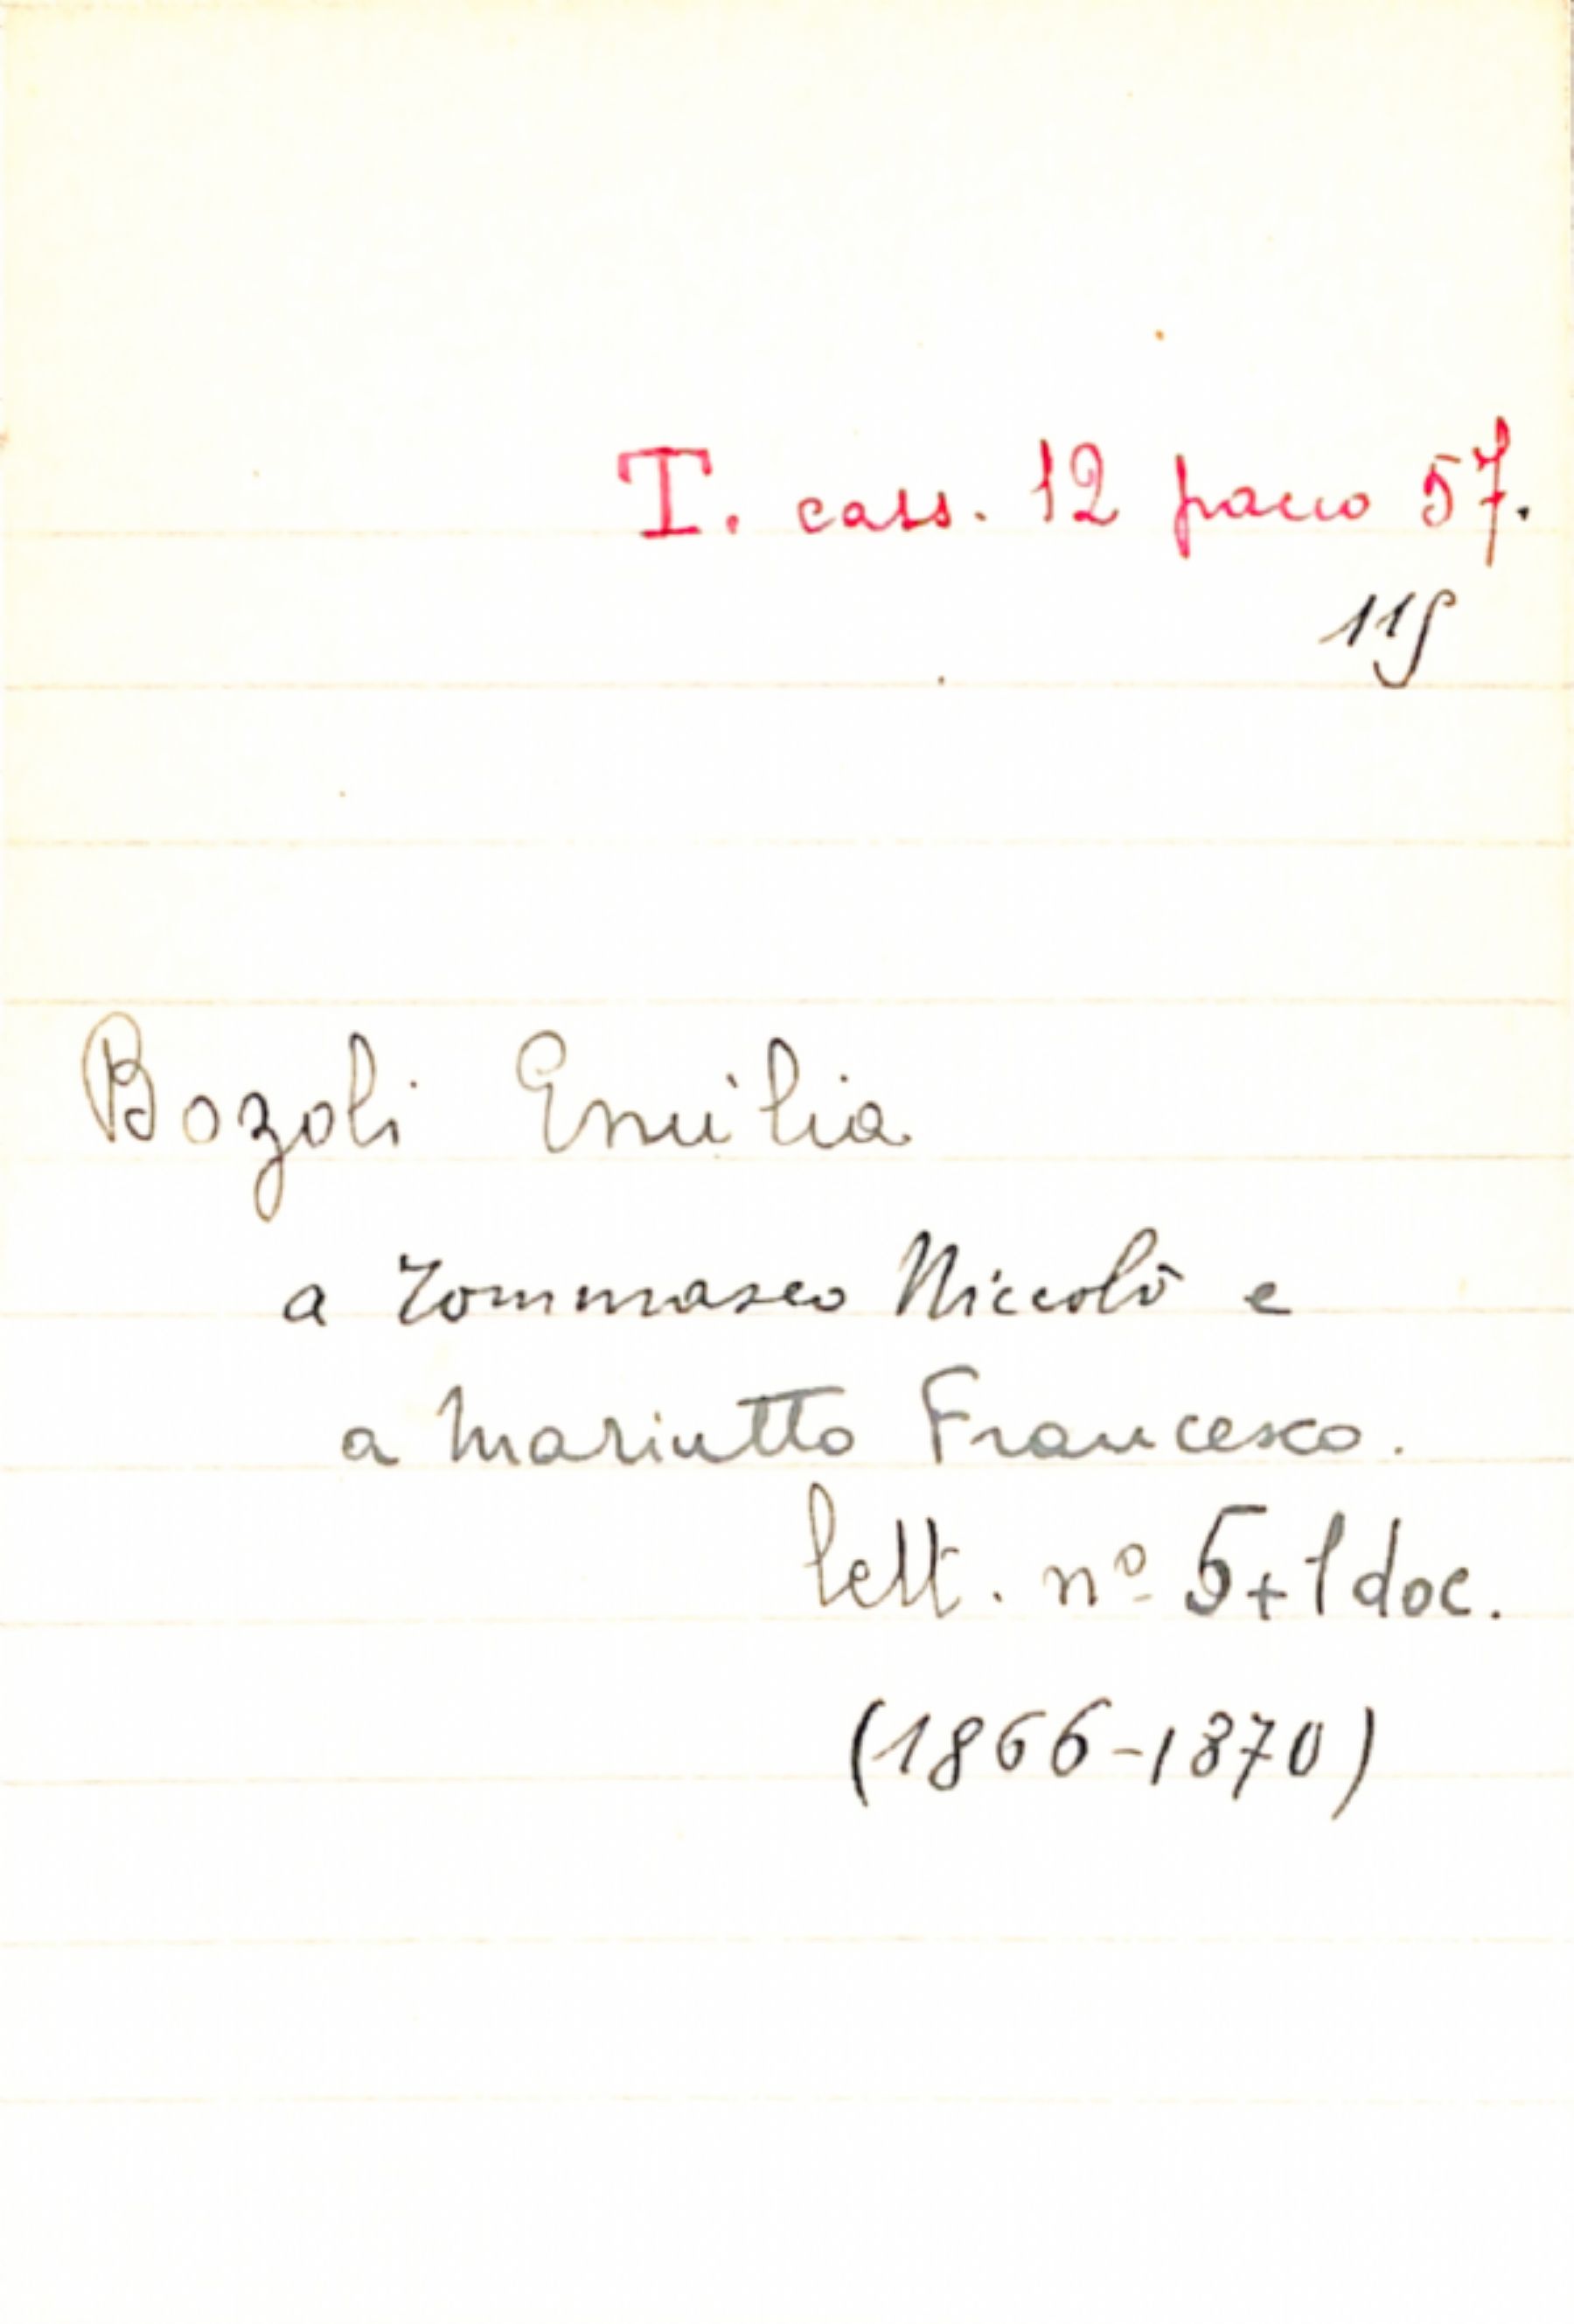 T. cass. 12 pacco 57.
115
Bozoli Emilia
a Tommaseo Niccolò e
a Mariutto Francesco.
lett. nº 5+1 doc.
(1866-1870)